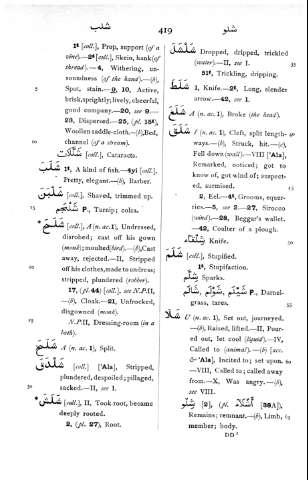 شلب
419
شلو
1ᵗ [coll.], Prop, support (of a
vine).—2ᵈ [coll.], Skein, hank (of
thread).—4, Withering, un-
soundness (of the hand).—(b),
5 Spot, stain.—9, 10, Active,
brisk, sprightly; lively, cheerful,
good company.—20, see 9.—
23, Dispersed.—25, (pl. 15ᵗ),
Woollen saddle-cloth.—(b), Bed,
10 channel (of a stream).
[coll.], Cataracts.
1ᵗ, A kind of fish.—4yi [coll.],
Pretty, elegant.—(b), Barber.
[coll.], Shaved, trimmed up.
15 P., Turnip; colza.
[coll.], A (n. ac. 1), Undressed,
disrobed; cast off his gown
(monk); moulted (bird).—(b), Cast
away, rejected.—II, Stripped
20 off his clothes, made to undress;
stripped, plundered (robber).
17, (pl. 44) [coll.], see N.P.II,
—(b), Cloak.—21, Unfrocked,
disgowned (monk).
25 N.P.II, Dressing-room (in a
bath).
شلخ A (n. ac. 1), Split.
[coll.] ['Ala], Stripped,
plundered, despoiled; pillaged,
30 sacked.—II, see I.
شلش [coll.], II, Took root, became
deeply rooted.
2, (pl. 27), Root.
شلشل Dropped, dripped, trickled
(water).—II, see I.
51ᵗ, Trickling, dripping.
شلط I, Knife.—2ᵗ, Long, slender
arrow.—42, see 1.
A (n. ac. 1), Broke (the head).
شلق I (n. ac. 1), Cleft, split length-
ways.—(b), Struck, hit.—(c),
Fell down (wall).—VIII ['Ala],
Remarked, noticed; got to
know of, got wind of; suspect-
ed, surmised.
2, Eel.—4ᵗ, Grooms, equer-
ries.—5, see 2.—27, Sirocco
(wind).—28, Beggar's wallet.
—42, Coulter of a plough.
شلقاء Knife.
شلم [coll.], Stupified.
1ᵗ, Stupifaction.
Sparks.
شيلم, شولم, شالم P., Darnel-
grass, tares.
شلا U (n. ac. 1), Set out, journeyed.
—(b), Raised, lifted.—II, Pour-
ed out, let cool (liquid).—IV,
Called to (animal).—(b) [acc.
&-'Ala], Incited to; set upon.
—VIII, Called to; called away
from.—X, Was angry.—(b),
see VIII.
شلو [2], (pl. أشلاء [38A]),
Remains; remnant.—(b), Limb,
member; body.
DD²